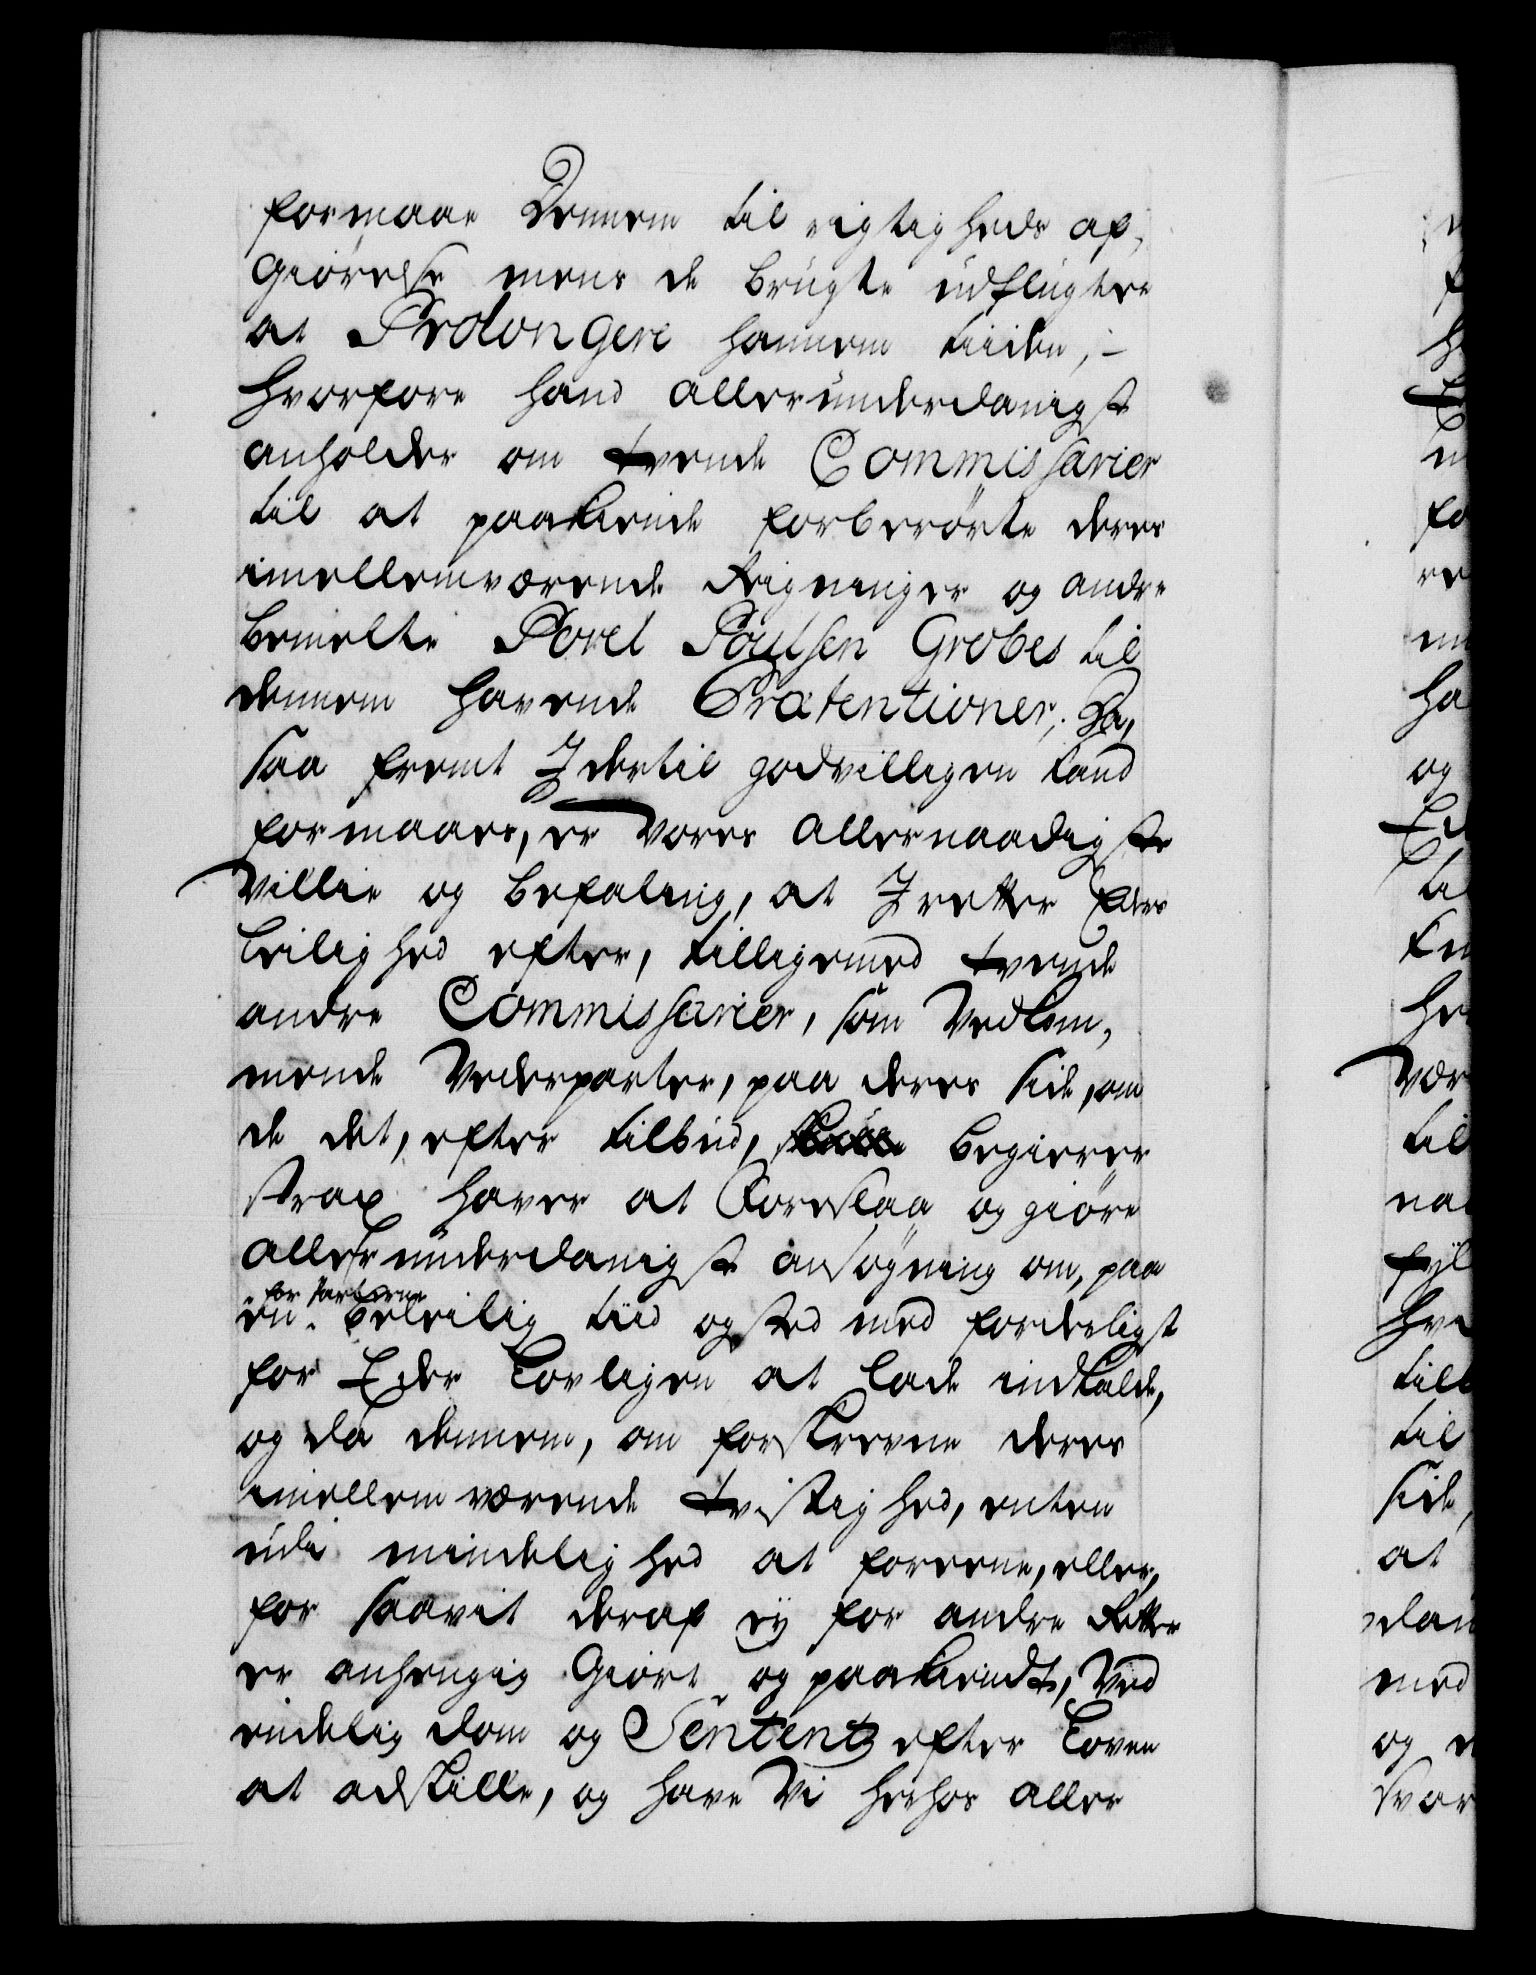 formaae Dennem til rigtigheds af,
Giörelse mens de brugte udflugter
at Prolongere hannem tiiden, -
hvorfore hand allerunderdanigst
anholder om tvende Commissarier
til at paakiende forberörte deres
imellemværende Reigninger og andre
bemelte Povel Poulsen Grobes til
dennem havende Prætentioner; Da,
saa fremt I dertil godvilligen kand
formaaes, er Vores allernaadigste
Villie og befaling, at I retter Eders
leilighed efter, tilligemed tvende
andre Commissarier, som Vedkom,
mende Vederparter, paa deres side, om
de det, efter tilbud, begierer
strax haver at Foreslaa og giöre
allerunderdanigst ansögning om, paa
for Parterne
en beleilig tiid og sted med fordeligst
for Eder Lovligen at lade indkalde,
og da dennem, om forskrevne deres
imellem værende tvistighed, enten
udi mindelighed at foreene, eller,
for saavit deraf ej for andre Retter
er anhengig Giort og paakiendt, Ved
endelig dom og Sententz efter Loven
at adskille, og have Vi hoshos aller